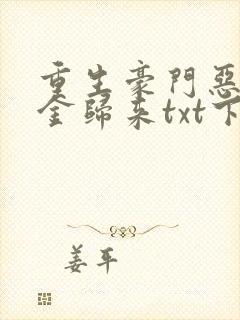 重生豪門惡
金歸來txt下
姜平